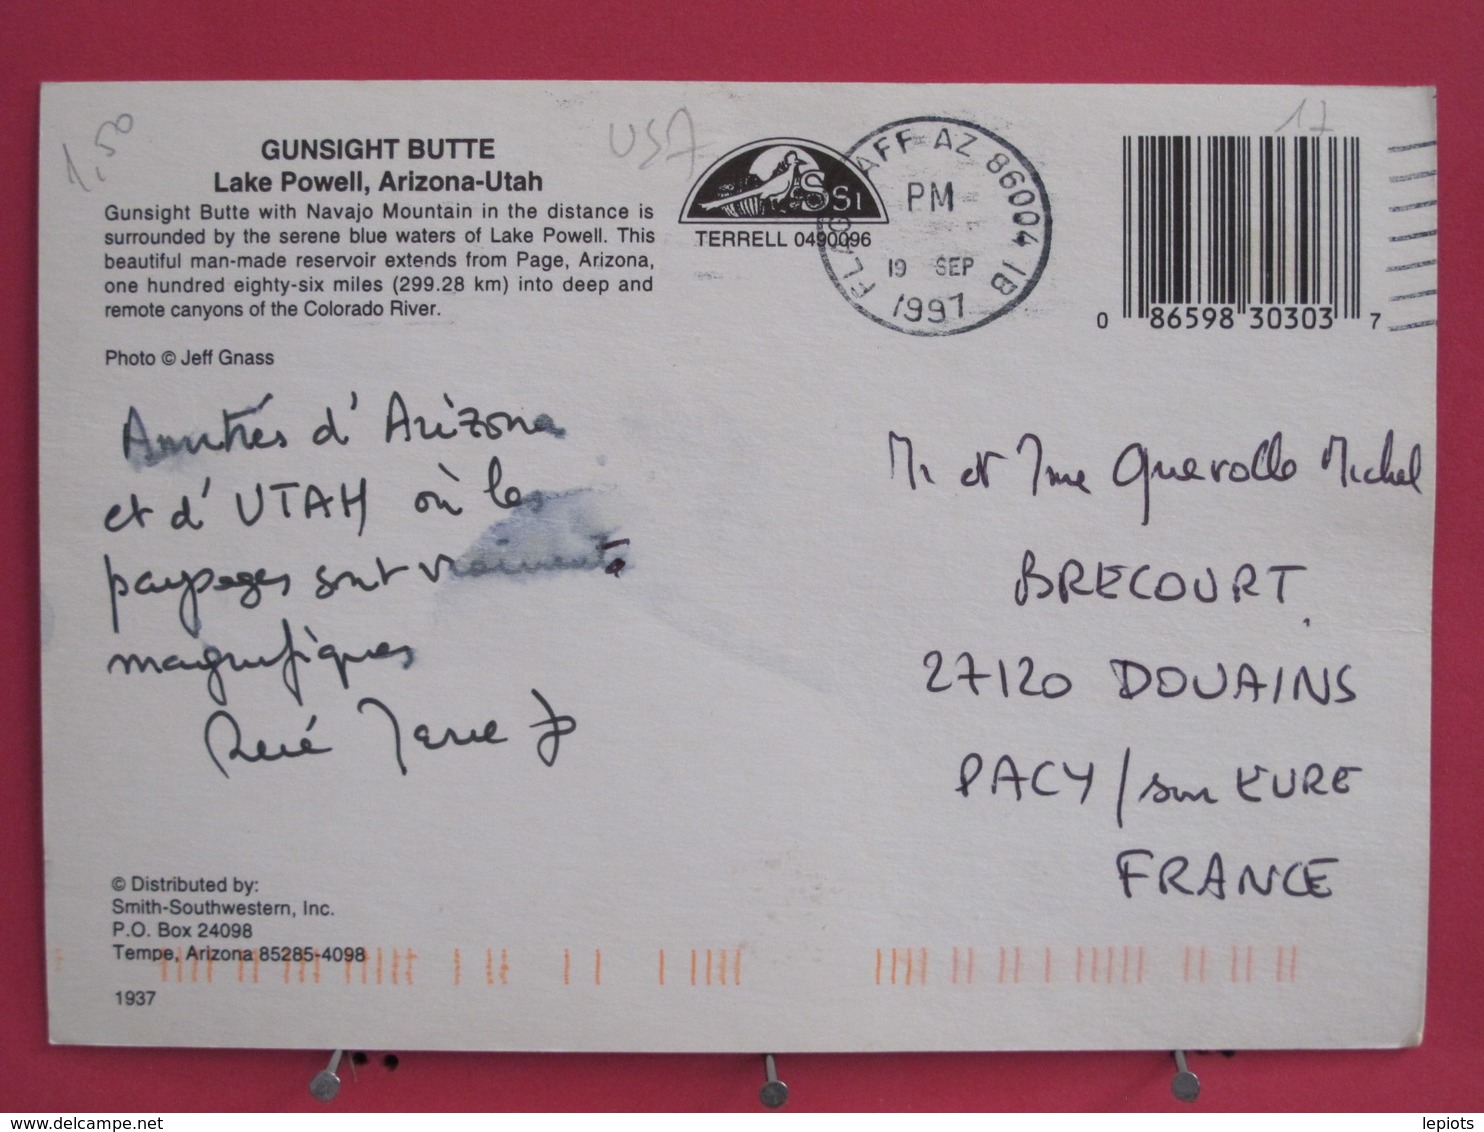 1,50
USA
17
GUNSIGHT BUTTE
Lake Powell, Arizona-Utah
Gunsight Butte with Navajo Mountain in the distance is
surrounded by the serene blue waters of Lake Powell. This
beautiful man-made reservoir extends from Page, Arizona,
one hundred eighty-six miles (299.28 km) into deep and
remote canyons of the Colorado River.
Photo © Jeff Gnass
SSI
TERRELL 0490096
FLAGSTAFF AZ 86004 1B
PM
19 SEP
1997
0 86598 30303 7
Amitiés d'Arizona
et d'UTAH où les
paysages sont vraiment
magnifiques
René
M et Mme Querolle Michel
BRECOURT
27120 DOUAINS
PACY/sur EURE
FRANCE
© Distributed by:
Smith-Southwestern, Inc.
P.O. Box 24098
Tempe, Arizona 85285-4098
1937
http://www.delcampe.net
lepiots